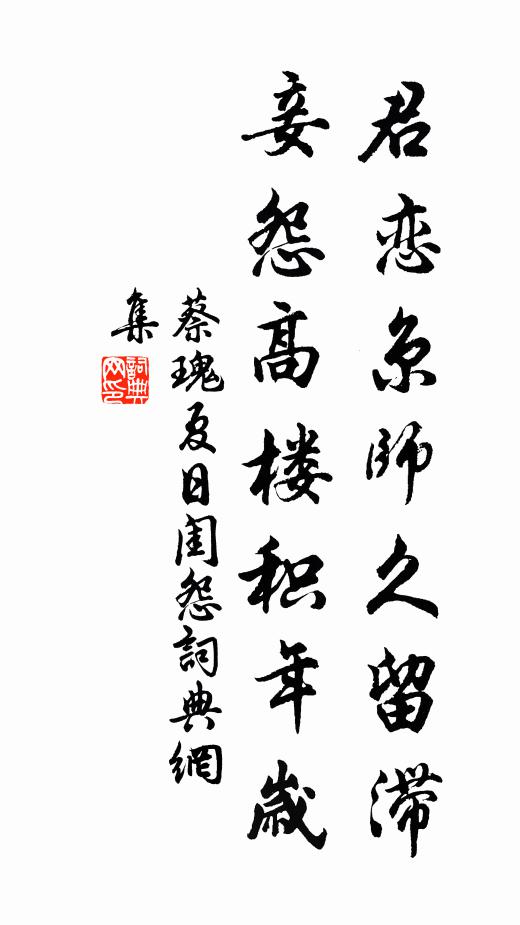 君恋京师久留滞
妾怨高楼积年岁
蔡瑰夏日闺怨詞典網
集
詞典
网印